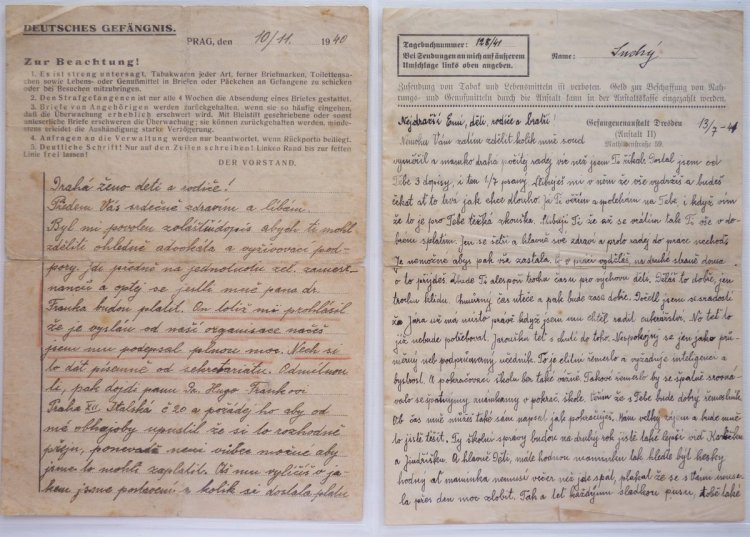 DEUTSCHES GEFÄNGNIS.
PRAG, den 10/11. 1940
Zur Beachtung!
1. Es ist streng untersagt, Tabakwaren jeder Art, ferner Briefmarken, Toilettensa-
chen sowie Lebens- oder Genußmittel in Briefen oder Päckchen an Gefangene zu schicken
oder bei Besuchen mitzubringen.
2. Den Strafgefangenen ist nur alle 4 Wochen die Absendung eines Briefes gestattet.
3. Briefe von Angehörigen werden zurückgegeben, wenn sie so häufig eingehen,
daß die Überwachung erheblich erschwert wird. Mit Bleistift geschriebene oder sonst
unleserliche Briefe erschweren die Überwachung; sie können zurückgegeben werden, minde-
stens erleidet die Aushändigung starke Verzögerung.
4. Anfragen an die Verwaltung werden nur beantwortet, wenn Rückporto beiliegt.
5. Deutliche Schrift! Nur auf den Zeilen schreiben! Linken Rand bis zur fetten
Linie frei lassen!
DER VORSTAND.
Drahá ženo děti a rodiče!
Předem Vás srdečně zdravím a líbám.
Byl mi povolen abych ti mohl
zděliti ohledně advokáta a vyživovací pod-
pory. Jdi předně na jednotu žel. zaměst-
nanců a optej se jestli mně pana dr.
Franka budou platit. On totiž mi prohlásil
že je vyslán od naší organisace načež
jsem mu podepsal plnou moc. Nech si
to dát písemně od sekretariátu. Odmítnou
li, pak dojdi panu Dr. Hugo Frankovi
Praha XII, Italská č 20 a požádej ho aby od
mé obhajoby upustil že si to rozhodně
přeju, poněvadž není vůbec možné aby
jsme to mohli zaplatit. Též mu vylíčíš v ja-
kém jsme postavení a kolik se dostala platu
Tagebuchnummer: 128/41
Bei Sendungen auf äußerem
Umschlage links oben angeben.
Name: Suchý
Zusendung von Tabak und Lebensmitteln ist verboten. Geld zur Beschaffung von Nah-
rungs- und Genußmitteln durch die Anstalt kann in der Anstaltskasse eingezahlt werden.
Gefangenenanstalt Dresden 13/7 - 41
(Anstalt II)
Mathildenstraße 59.
Nejdražší děti, rodiče a bratři!
Nemohu Vám zatím zdělit kolik mně soud
vyměřil a maminko drahá počítej raději víc než jsem Ti říkal. Dostal jsem od
Tebe 3 dopisy, i ten 1/7 psaný. Slibuješ mi v něm že vše vydržíš a budeš
čekat ať to trvá jak chce dlouho. Já Ti věřím a spoléhám na Tebe i když vím
že to je pro Tebe těžká zkouška. Slibuji Ti že až se vrátím tak Ti vše v do-
brém splatím. Jen se šetři a hlavně své zdraví a proto raději do práce nechoď.
Je nemožné abys pak vše zastala. Co v práci vyděláš na druhé straně doma
o to přijdeš. Bude Ti alespoň trochu času pro výchovu dětí. Děláš to dobře, jen
trochu klidu. čas utěče a pak bude zase dobře. Početl jsem se s radostí
že Jára už má místo právě když jsem mu chtěl radit cukrářství. No teď to
již nebude potřebovat. Jaroušku teď s chutí do toho. Nespokojuj se jen jako prů-
měrný neb podprůměrný učedník. To je elitní řemeslo a vyžaduje inteligenci a
bystrost. A pokračovací školu ber také vážně. Takové řemeslo by se špatně srovná-
valo se špatnými známkami v pokrač. škole. Věřím že z Tebe bude dobrý řemeslník.
Ob čas mně můžeš také sám napsat, jak pokračuješ. Mám velký zájem a bude mně
to jistě těšit. Ty školní zprávy budou na druhý rok jistě také lepší viď
a Jindříšku. A hlavně děti, máte hodnou maminku tak hleďte být hezky
hodný ať maminka nemusí večer než jde spat, plakat že se s Vámi muse-
la přes den moc zlobit. Tak a teď každýmu sladkou pusu, tobě také